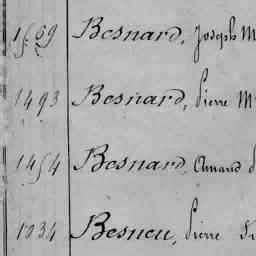 1569 Besnard, Joseph M
1493 Besnard, Pierre M
1454 Besnard, Amand
1234 Besneu, Pierre Fr